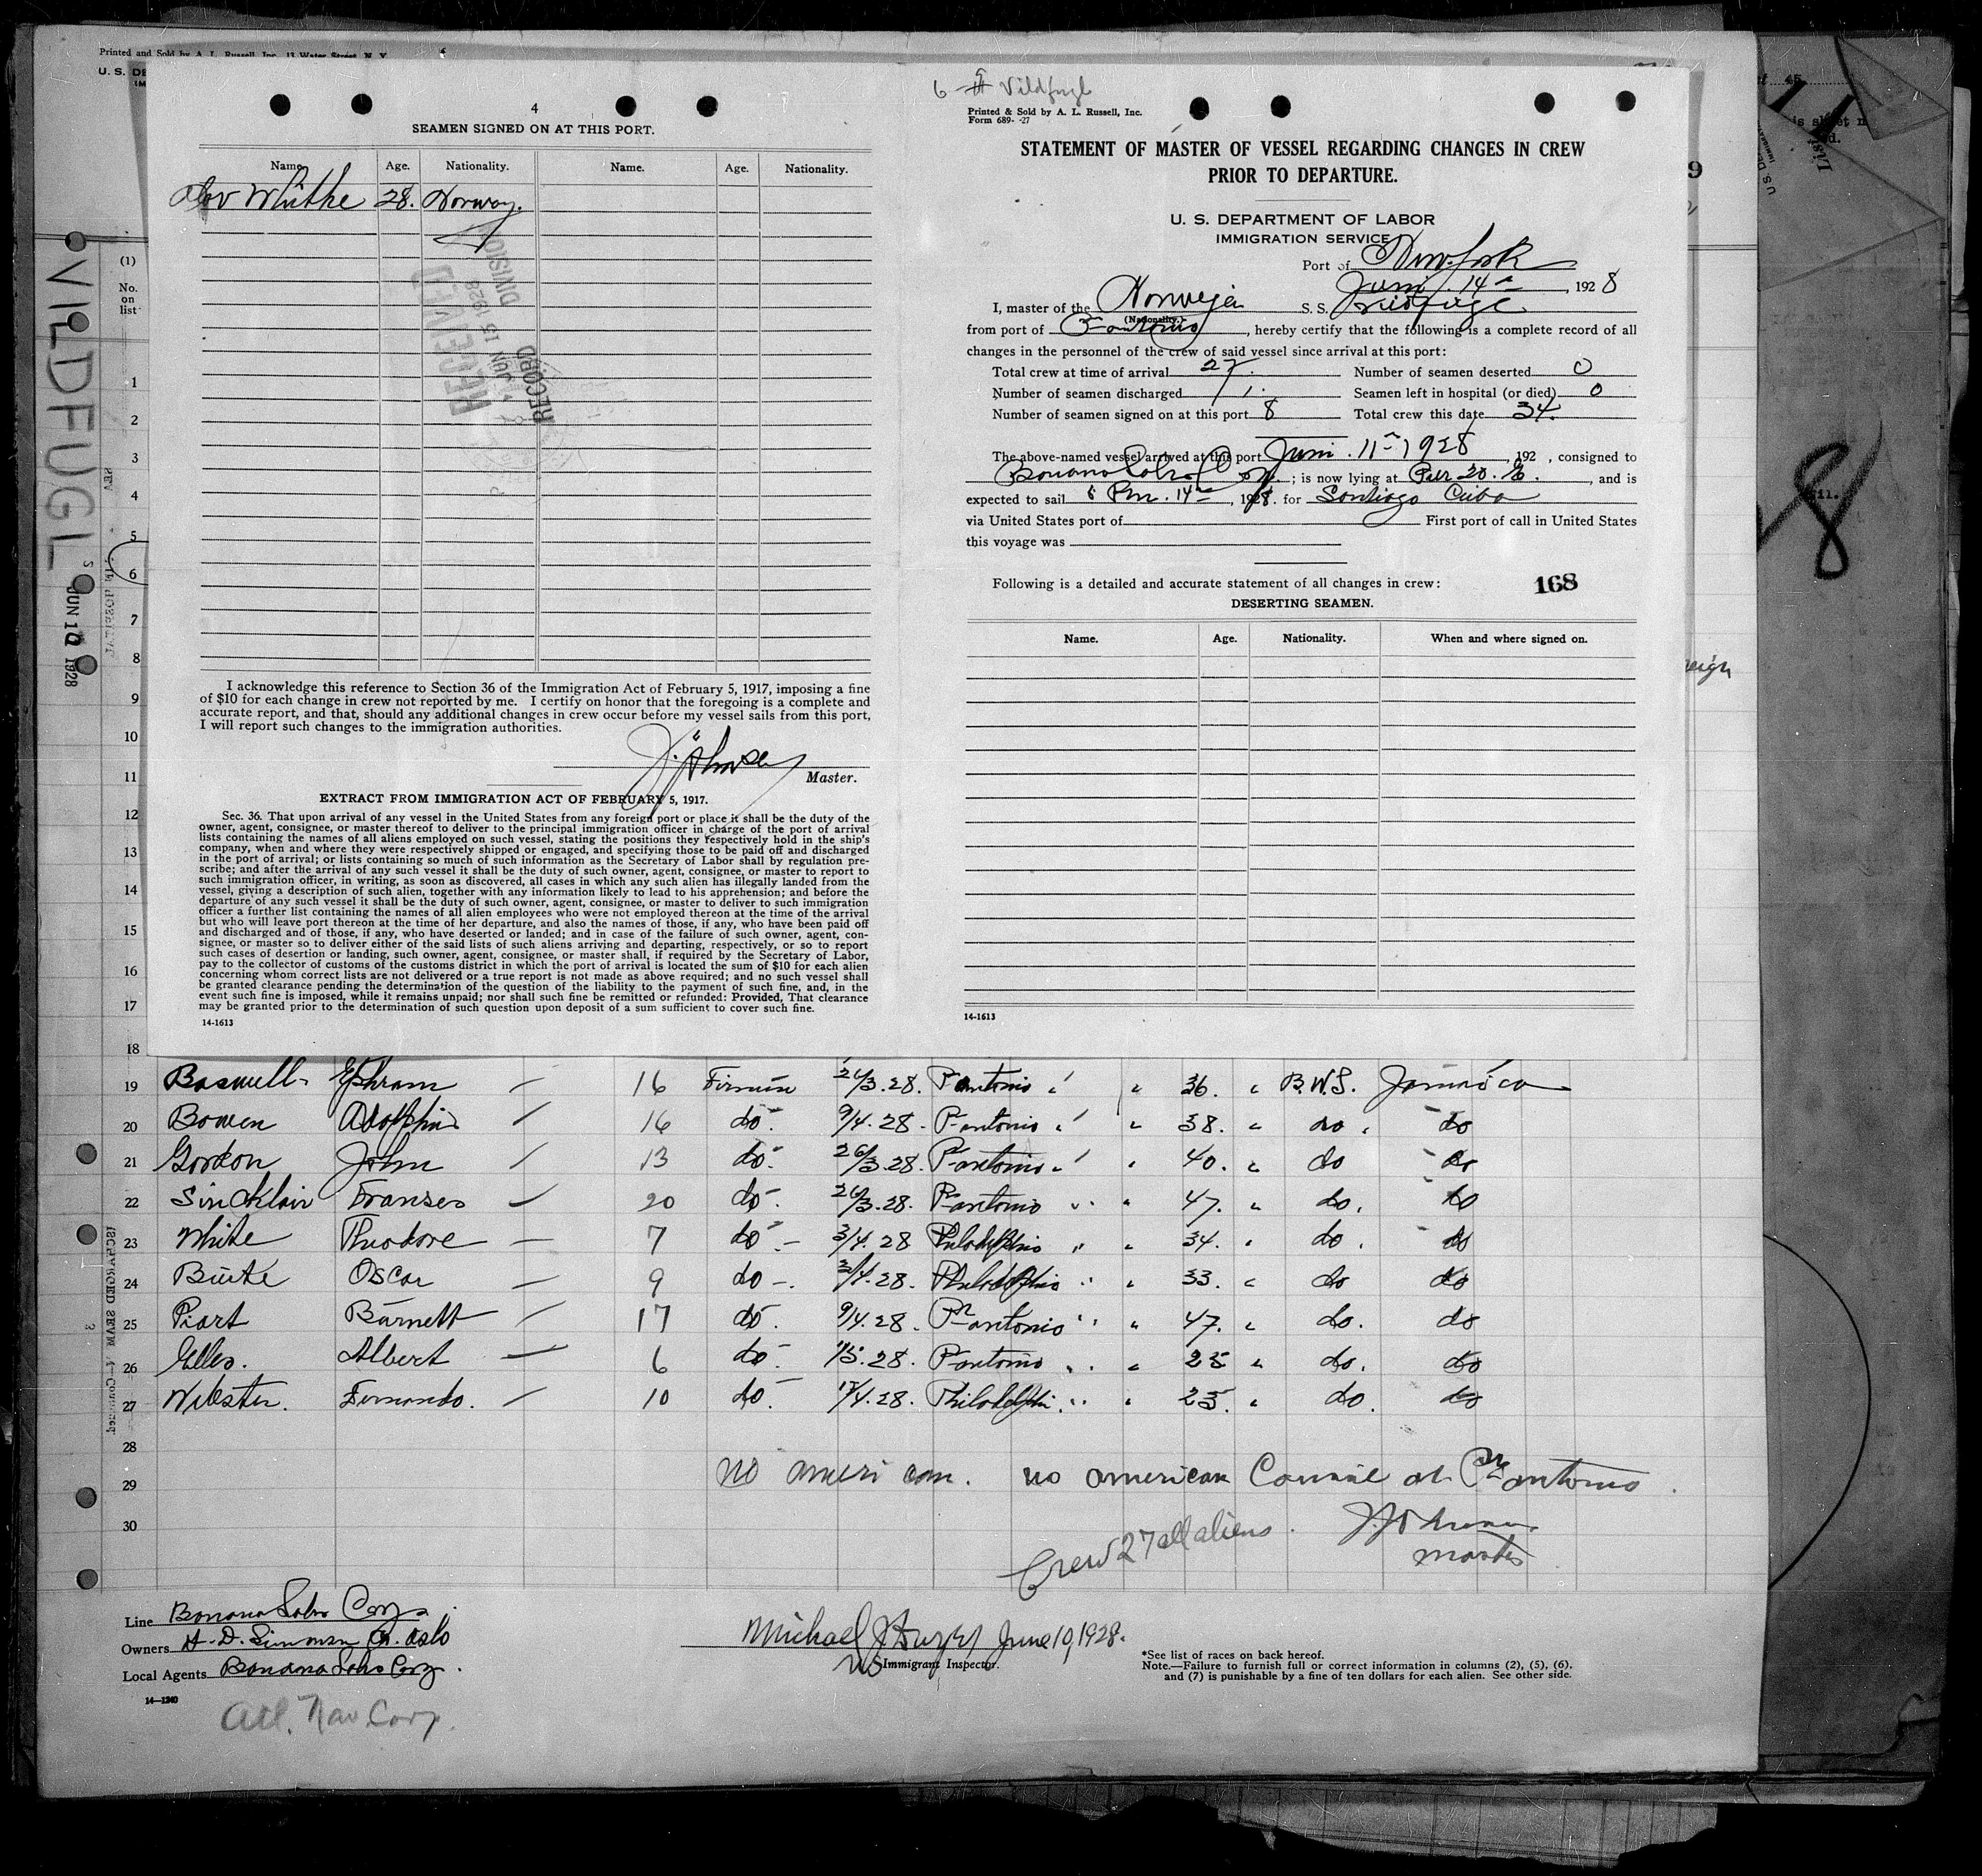 Printed and Sold by A. L. Russell, Inc. 13 Water Street, N. Y.
U. S. DE
VILDFUGL
JUN 10 1928
4
SEAMEN SIGNED ON AT THIS PORT.
Name. Age. Nationality. Name. Age. Nationality.
Olov Whithe 28. Norway.
RECEIVED
JUN 15 1928
RECORD DIVISION
I acknowledge this reference to Section 36 of the Immigration Act of February 5, 1917, imposing a fine
of $10 for each change in crew not reported by me. I certify on honor that the foregoing is a complete and
accurate report, and that, should any additional changes in crew occur before my vessel sails from this port,
I will report such changes to the immigration authorities.
Master.
EXTRACT FROM IMMIGRATION ACT OF FEBRUARY 5, 1917.
Sec. 36. That upon arrival of any vessel in the United States from any foreign port or place it shall be the duty of the
owner, agent, consignee, or master thereof to deliver to the principal immigration officer in charge of the port of arrival
lists containing the names of all aliens employed on such vessel, stating the positions they respectively hold in the ship's
company, when and where they were respectively shipped or engaged, and specifying those to be paid off and discharged
in the port of arrival; or lists containing so much of such information as the Secretary of Labor shall by regulation pre-
scribe; and after the arrival of any such vessel it shall be the duty of such owner, agent, consignee, or master to report to
such immigration officer, in writing, as soon as discovered, all cases in which any such alien has illegally landed from the
vessel, giving a description of such alien, together with any information likely to lead to his apprehension; and before the
departure of any such vessel it shall be the duty of such owner, agent, consignee, or master to deliver to such immigration
officer a further list containing the names of all alien employees who were not employed thereon at the time of the arrival
but who will leave port thereon at the time of her departure, and also the names of those, if any, who have been paid off
and discharged and of those, if any, who have deserted or landed; and in case of the failure of such owner, agent, con-
signee, or master so to deliver either of the said lists of such aliens arriving and departing, respectively, or so to report
such cases of desertion or landing, such owner, agent, consignee, or master shall, if required by the Secretary of Labor,
pay to the collector of customs of the customs district in which the port of arrival is located the sum of $10 for each alien
concerning whom correct lists are not delivered or a true report is not made as above required; and no such vessel shall
be granted clearance pending the determination of the question of the liability to the payment of such fine, and, in the
event such fine is imposed, while it remains unpaid; nor shall such fine be remitted or refunded: Provided, That clearance
may be granted prior to the determination of such question upon deposit of a sum sufficient to cover such fine.
14-1613
6 Vildfugl
Printed & Sold by A. L. Russell, Inc.
Form 689- -27
STATEMENT OF MASTER OF VESSEL REGARDING CHANGES IN CREW
PRIOR TO DEPARTURE.
U. S. DEPARTMENT OF LABOR
IMMIGRATION SERVICE
Port of New York
Juni 14, 1928
I, master of the Norwegia S. S. Vildfugl
(Nationality.)
from port of P antonio, hereby certify that the following is a complete record of all
changes in the personnel of the crew of said vessel since arrival at this port:
Total crew at time of arrival 27. Number of seamen deserted 0
Number of seamen discharged 1. Seamen left in hospital (or died) 0
Number of seamen signed on at this port 8 Total crew this date 34.
The above-named vessel arrived at this port Juni. 11 1928, 192 , consigned to
Banana Sales Corp.; is now lying at Pier 20. E., and is
expected to sail 6 Pm. 14, 1928. for Santiago Cuba
via United States port of First port of call in United States
this voyage was
Following is a detailed and accurate statement of all changes in crew: 168
DESERTING SEAMEN.
Name. Age. Nationality. When and where signed on.
14-1613
(1)
No.
on
list
1
2
3
4
5
6
7
8
9
10
11
12
13
14
15
16
17
18
19 Boswell Ephram 16 Fireman 26/3.28. P antonio " " 36. " B.W.I. Jamaica
20 Bowen Adolphus 16 do 9/4.28. P antonio " " 38. " do. do
21 Gordon John 13 do. 26/3.28. P antonio " " 40. " do do
22 Sincklair Franses 20 do. 26/3.28. P antonio " " 47. " do. do
23 White Theodore 7 do 3/4.28 Philadelphia " " 34. " do. do
24 Oscar 9 do 3/4.28. Philadelphia " " 33. " do do
25 Piart Barnett 17 do. 9/4.28. P antonio " " 47. " do. do
26 Albert 6 do. 28. P antonio " " 25 " do. do
27 Webster. Fernando. 10 do. 17/4.28. Philadelphi. " " 25. " do. do
28
29 no american. no american Council at P antonio.
30 Crew 27 all aliens.
Master
Line Banana Sales Corp.
Owners
Local Agents Banana Sales Corp.
14-1240
Atl. Nav. Corp.
Michael J June 10, 1928.
Immigrant Inspector.
*See list of races on back hereof.
Note.—Failure to furnish full or correct information in columns (2), (5), (6),
and (7) is punishable by a fine of ten dollars for each alien. See other side.